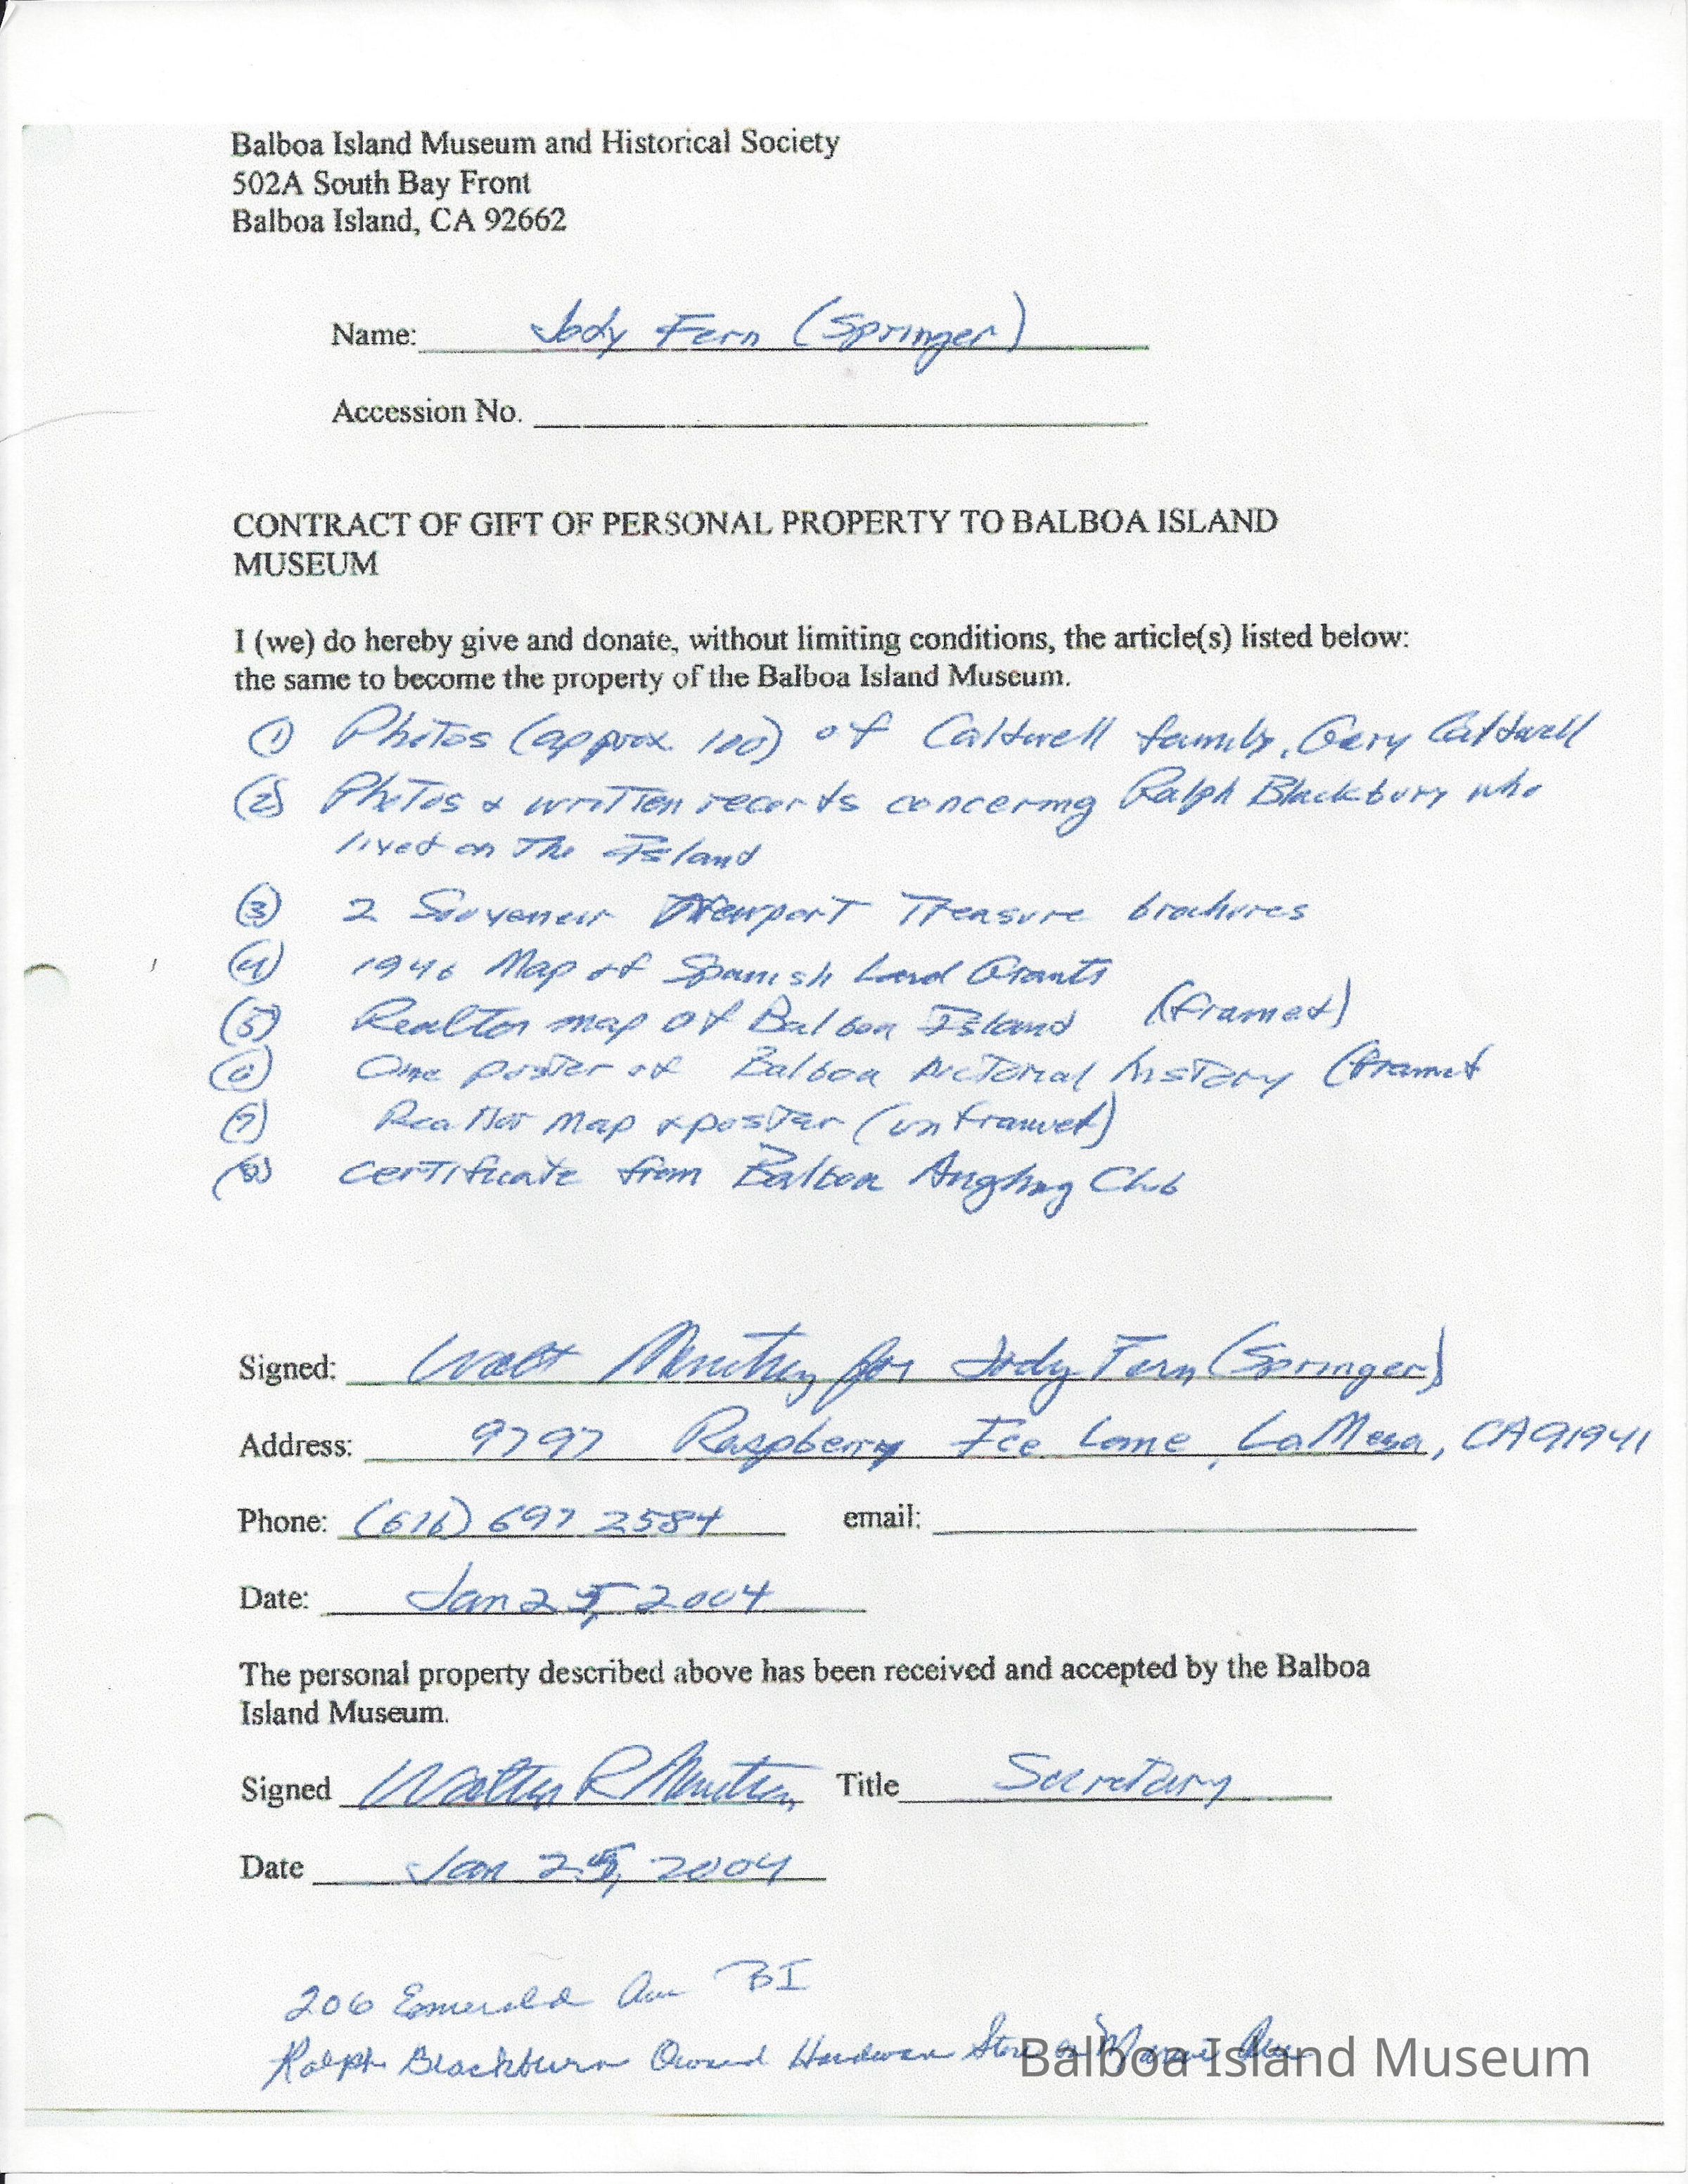 Balboa Island Museum and Historical Society
502A South Bay Front
Balboa Island, CA 92662
Name: Jody Fern (Springer)
Accession No.
CONTRACT OF GIFT OF PERSONAL PROPERTY TO BALBOA ISLAND
MUSEUM
I (we) do hereby give and donate, without limiting conditions, the article(s) listed below:
the same to become the property of the Balboa Island Museum.
(1) Photos (approx. 100) of Caldwell family, Gery Caldwell
(2) Photos & written records concerning Ralph Blackburn who
lived on The Island
(3) 2 Souveneir Newport Treasure brochures
(4) 1946 Map of Spanish Land Grants
(5) Realtor map of Balboa Island (framed)
(6) One poster of Balboa Pictorial history (framed
(7) Realtor Map & poster (unframed)
(8) Certificate from Balboa Angling Club
Signed: Walt for Jody Fern (Springer)
Address: 9797 Raspberry Ice Lane, La Mesa, CA 91941
Phone: (616) 697 2584 email:
Date: Jan 25, 2004
The personal property described above has been received and accepted by the Balboa
Island Museum.
Signed Walter R Title Secretary
Date Jan 25, 2004
206 Emerald Ave BI
Ralph Blackburn Owned Hardware Store on Marine Ave
Balboa Island Museum